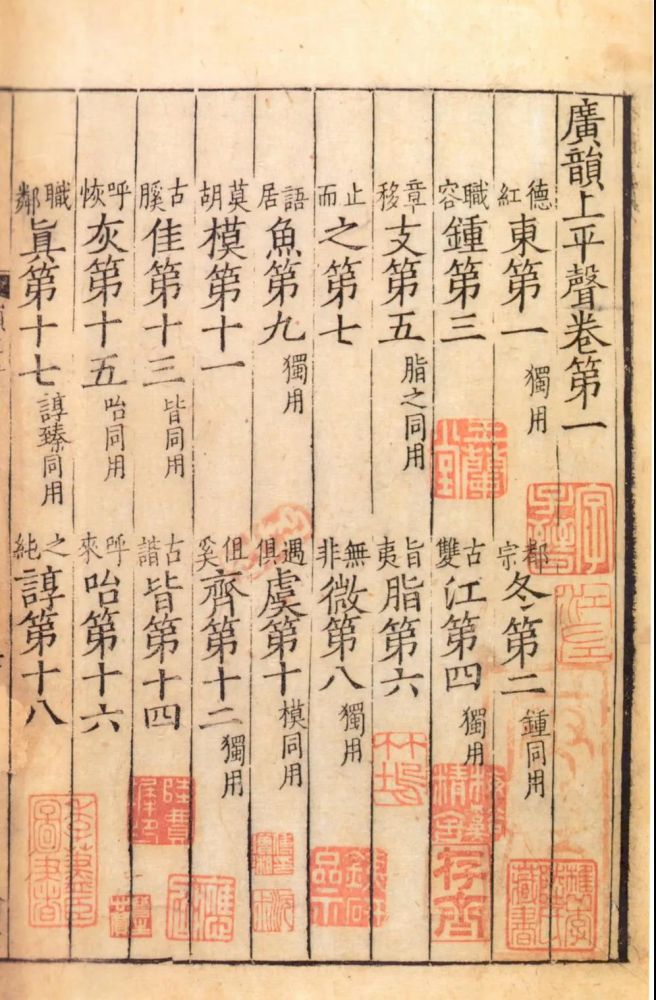 廣韻上平聲卷第一
德紅東第一獨用 都宗冬第二鍾同用
職容鍾第三 古雙江第四獨用
章移支第五脂之同用 旨夷脂第六
止而之第七 無非微第八獨用
語居魚第九獨用 遇俱虞第十模同用
莫胡模第十一 徂奚齊第十二獨用
古膎佳第十三皆同用 古諧皆第十四
呼恢灰第十五咍同用 呼來咍第十六
職鄰眞第十七諄臻同用 之純諄第十八